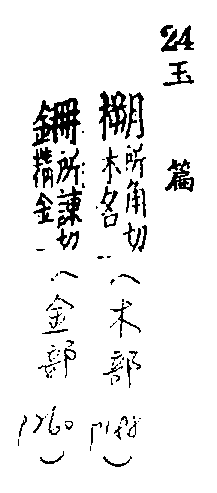 24 玉篇
所角切
木名 (木部 p188)
所諫切
金 (金部 p260)